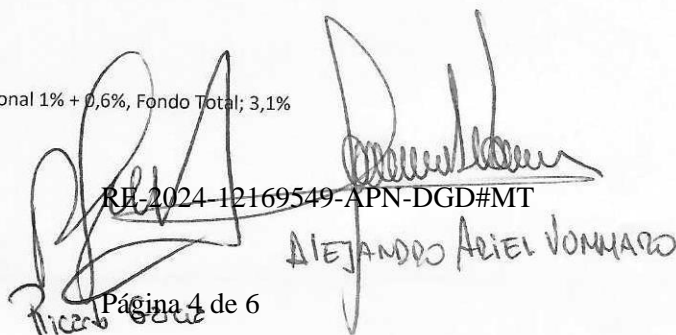 onal 1% + 0,6%, Fondo Total; 3,1%
RE-2024-12169549-APN-DGD#MT
ALEJANDRO ARIEL VOMMARO
Página 4 de 6
Ricardo